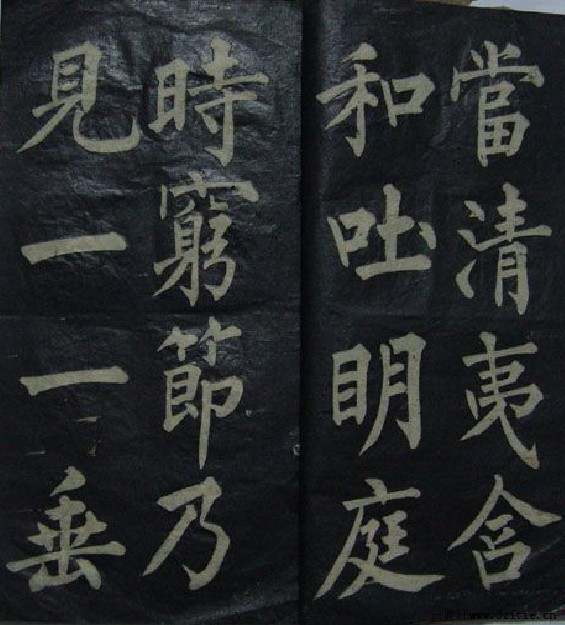 當清夷含
和吐明庭
時窮節乃
見一一垂
www.dzitie.cn